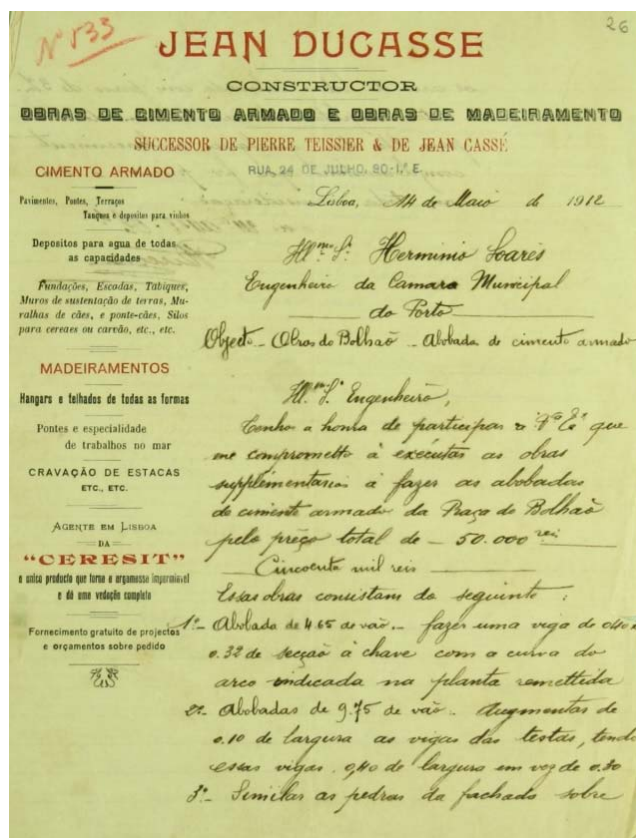 Nº 533
26
JEAN DUCASSE
CONSTRUCTOR
OBRAS DE CIMENTO ARMADO E OBRAS DE MADEIRAMENTO
SUCCESSOR DE PIERRE TEISSIER & DE JEAN CASSÉ
RUA, 24 DE JULHO, 90-1.º E.
CIMENTO ARMADO
Pavimentos, Pontes, Terraços
Tanques e depositos para vinhos
Depositos para agua de todas
as capacidades
Fundações, Escadas, Tabiques,
Muros de sustentação de terras, Mu-
ralhas de cães, e ponte-cães, Silos
para cereaes ou carvão, etc., etc.
MADEIRAMENTOS
Hangars e telhados de todas as formas
Pontes e especialidade
de trabalhos no mar
CRAVAÇÃO DE ESTACAS
ETC., ETC.
AGENTE EM LISBOA
DA
"CERESIT"
o unico producto que torna a argamassa impermeavel
e dá uma vedação completa
Fornecimento gratuito de projectos
e orçamentos sobre pedido
Lisboa, 14 de Maio de 1912
Ill.mo Sr. Herminio Soares
Engenheiro da Camara Municipal
do Porto
Objecto - Obras do Bolhaõ - Abobada de cimento armado
Ill.mo Sr. Engenheiro,
Tenho a honra de participar a Vª Exª que
me comprometto à executar as obras
supplementarias à fazer as abobadas
de cimento armado da Praça do Bolhaõ
pelo preço total de - 50.000 reis
Cincoenta mil reis
Essas obras consistam do seguinte :
1º - Abobada de 4.65 de vaõ. - fazer uma viga de 0.40 x
0.32 de secçaõ à chave com a curva do
arco indicada na planta remettida
2º - Abobadas de 9.75 de vaõ. Augmentas de
0.10 de largura as vigas das testas, tendo
essas vigas 0,40 de largura em vez de 0.30
3º - Similar as pedras da fachada sobre